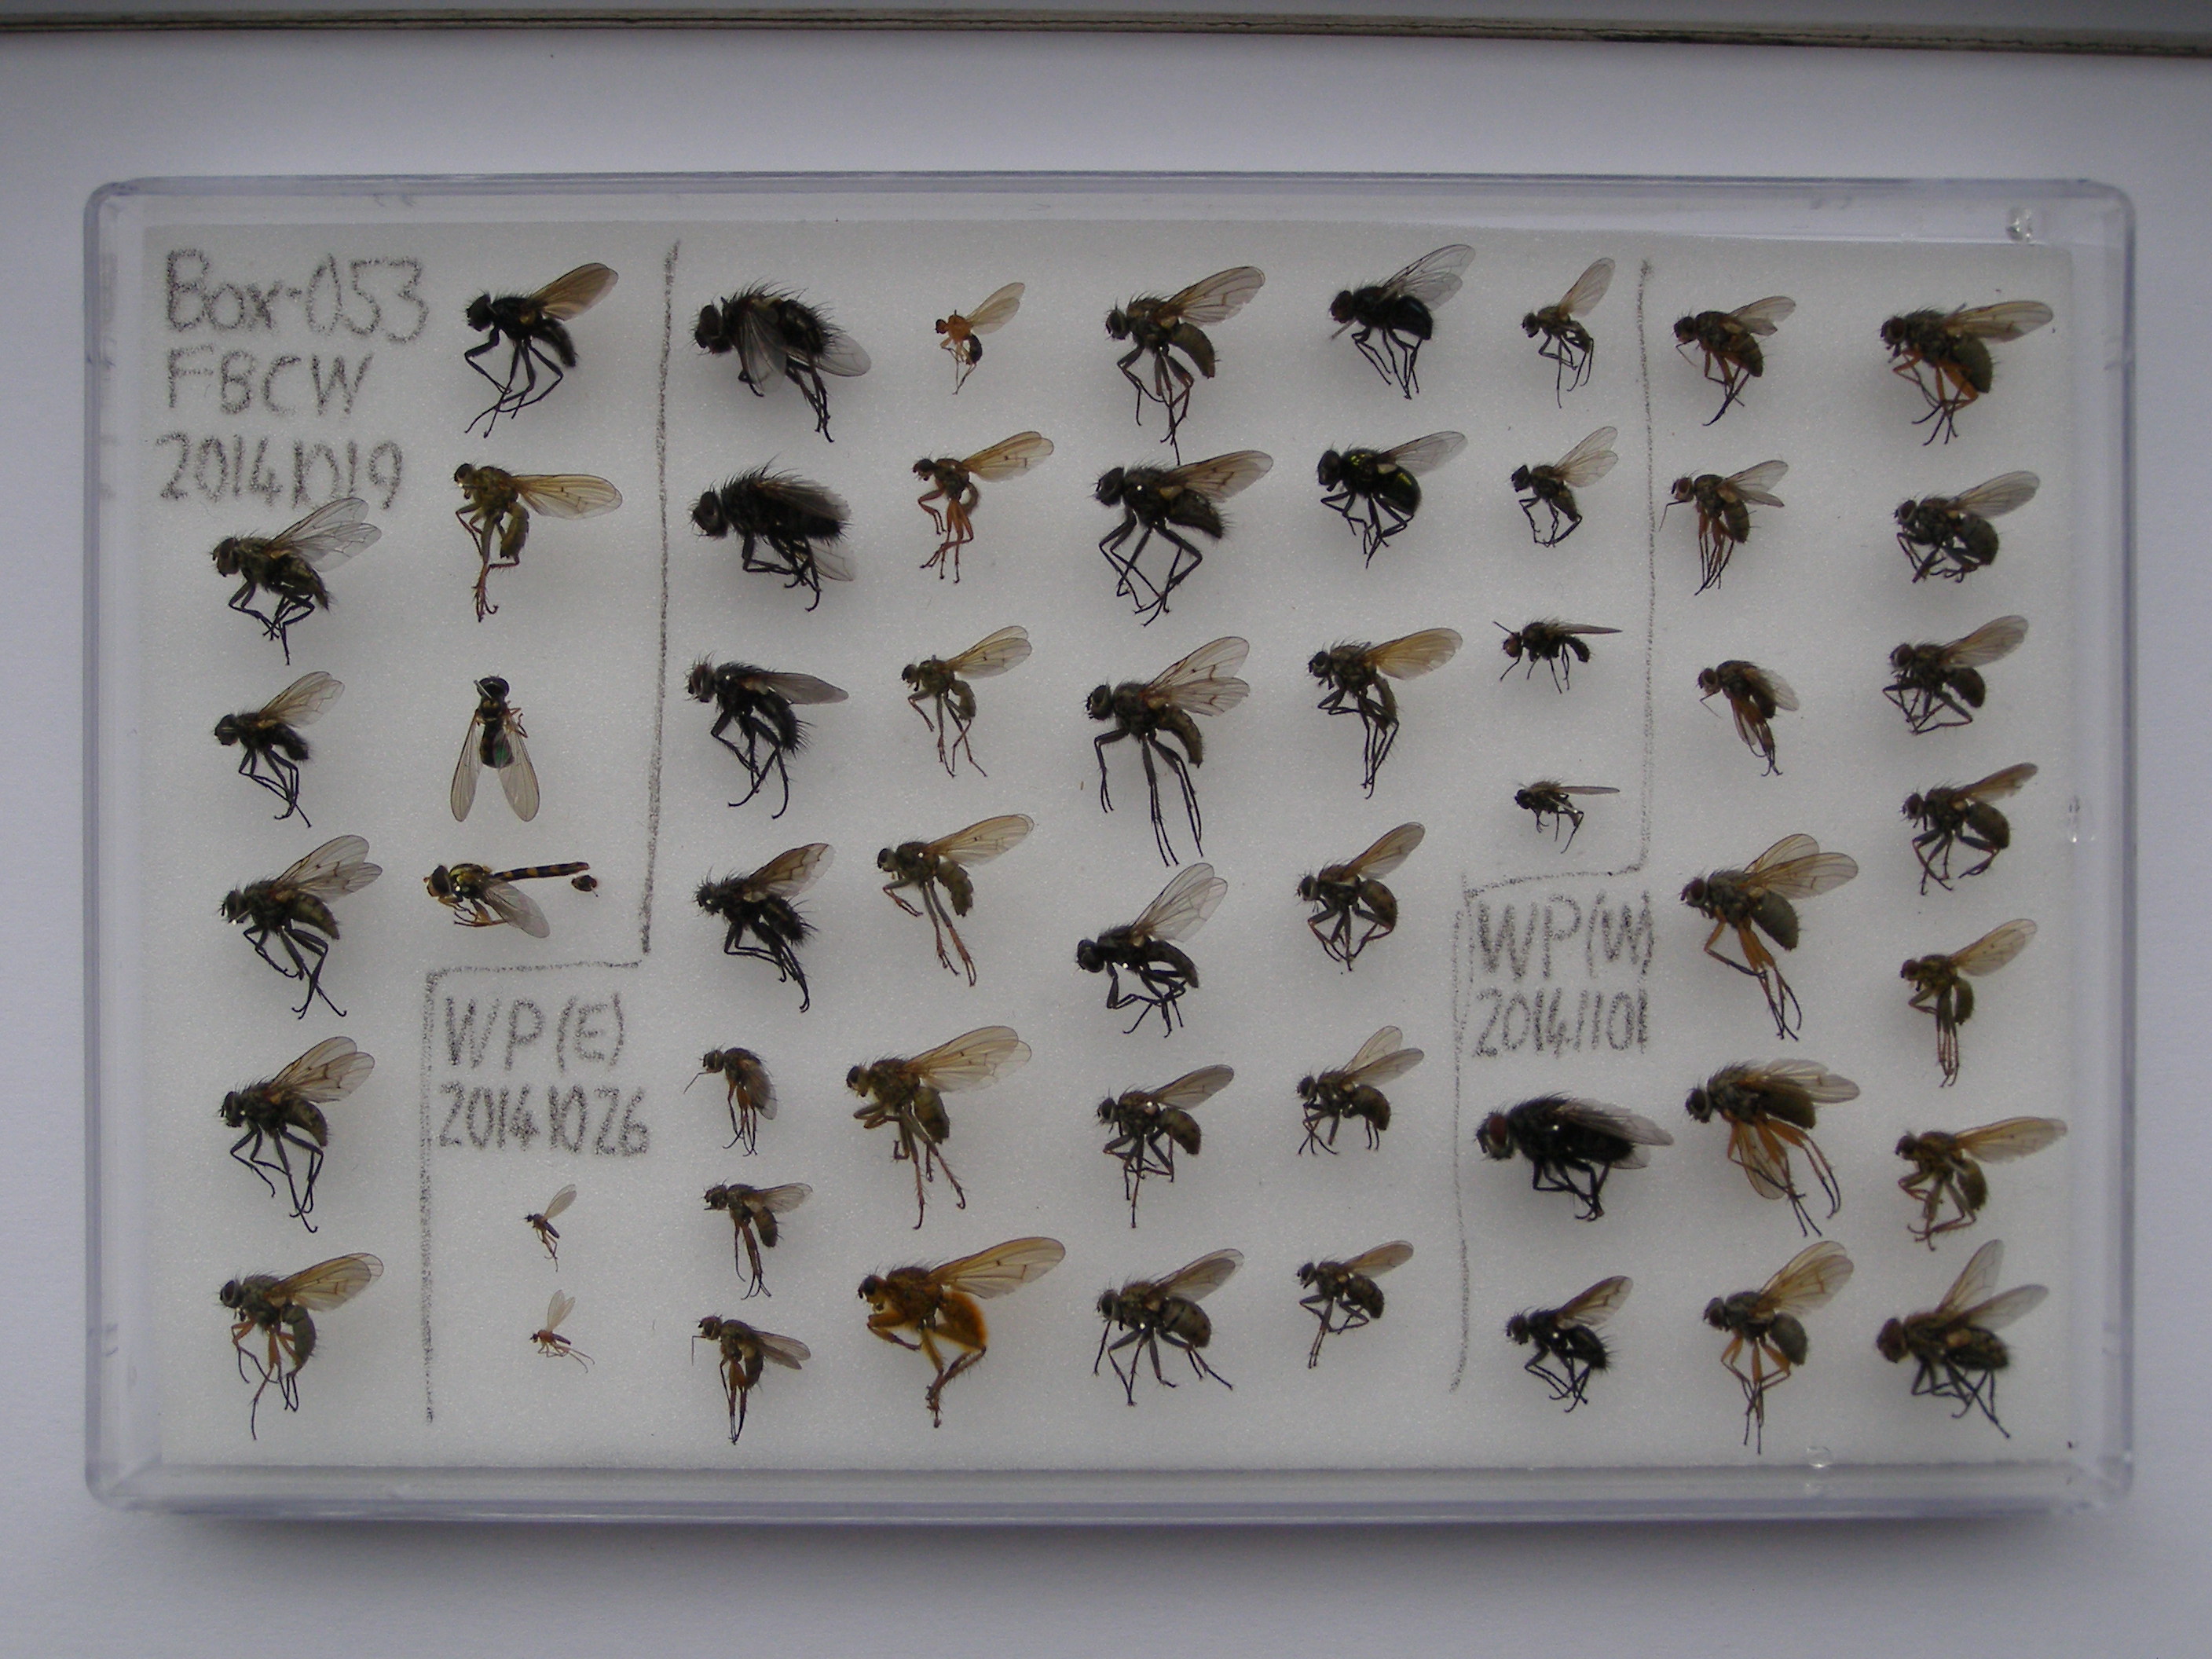 Box-053
FBCW
20141019
WP(E)
20141026
WP(W)
20141101